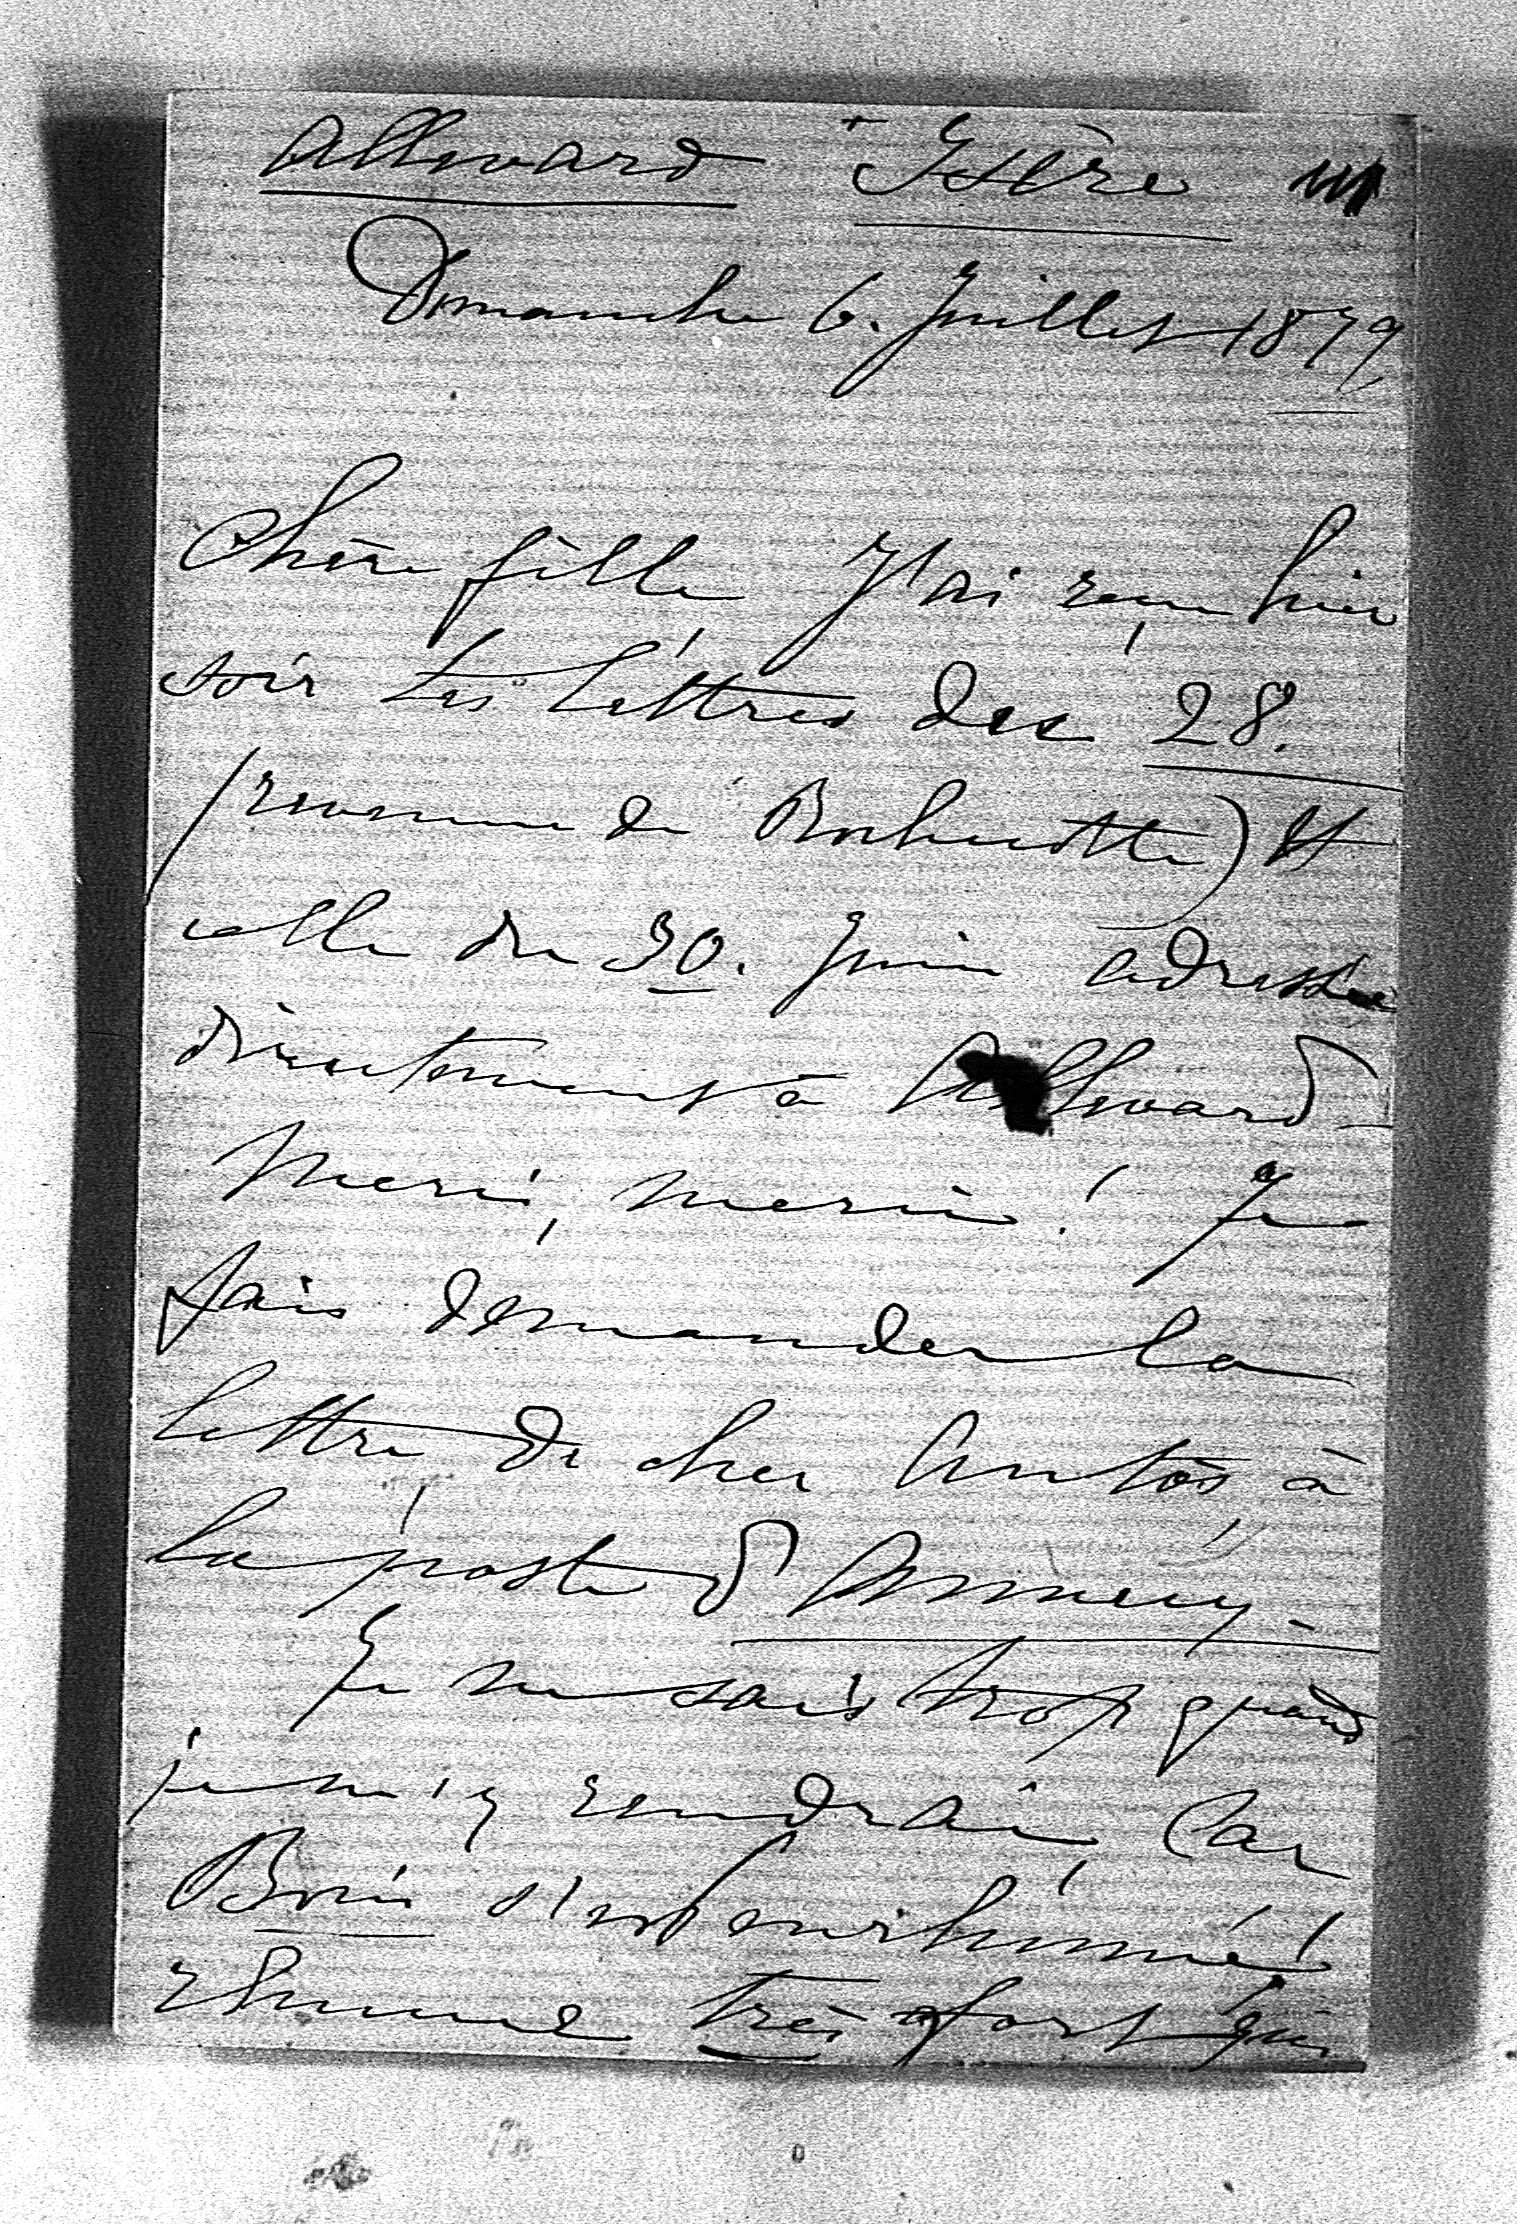 Allevard Isère
Dimanche 6. Juillet 1879,
Chère fille J'ai reçu hier
soir tes lettres des 28.
(revenue de Rochecotte) et
celle du 30. Juin adressée
directement à Allevard
Merci, merci! Je
fais demander la
lettre de cher Antos à
la poste d'Annecy-
Je ne sais trop quand
je m'y rendrai, Car
Boris s'est enrhumé!
rhume très fort qui